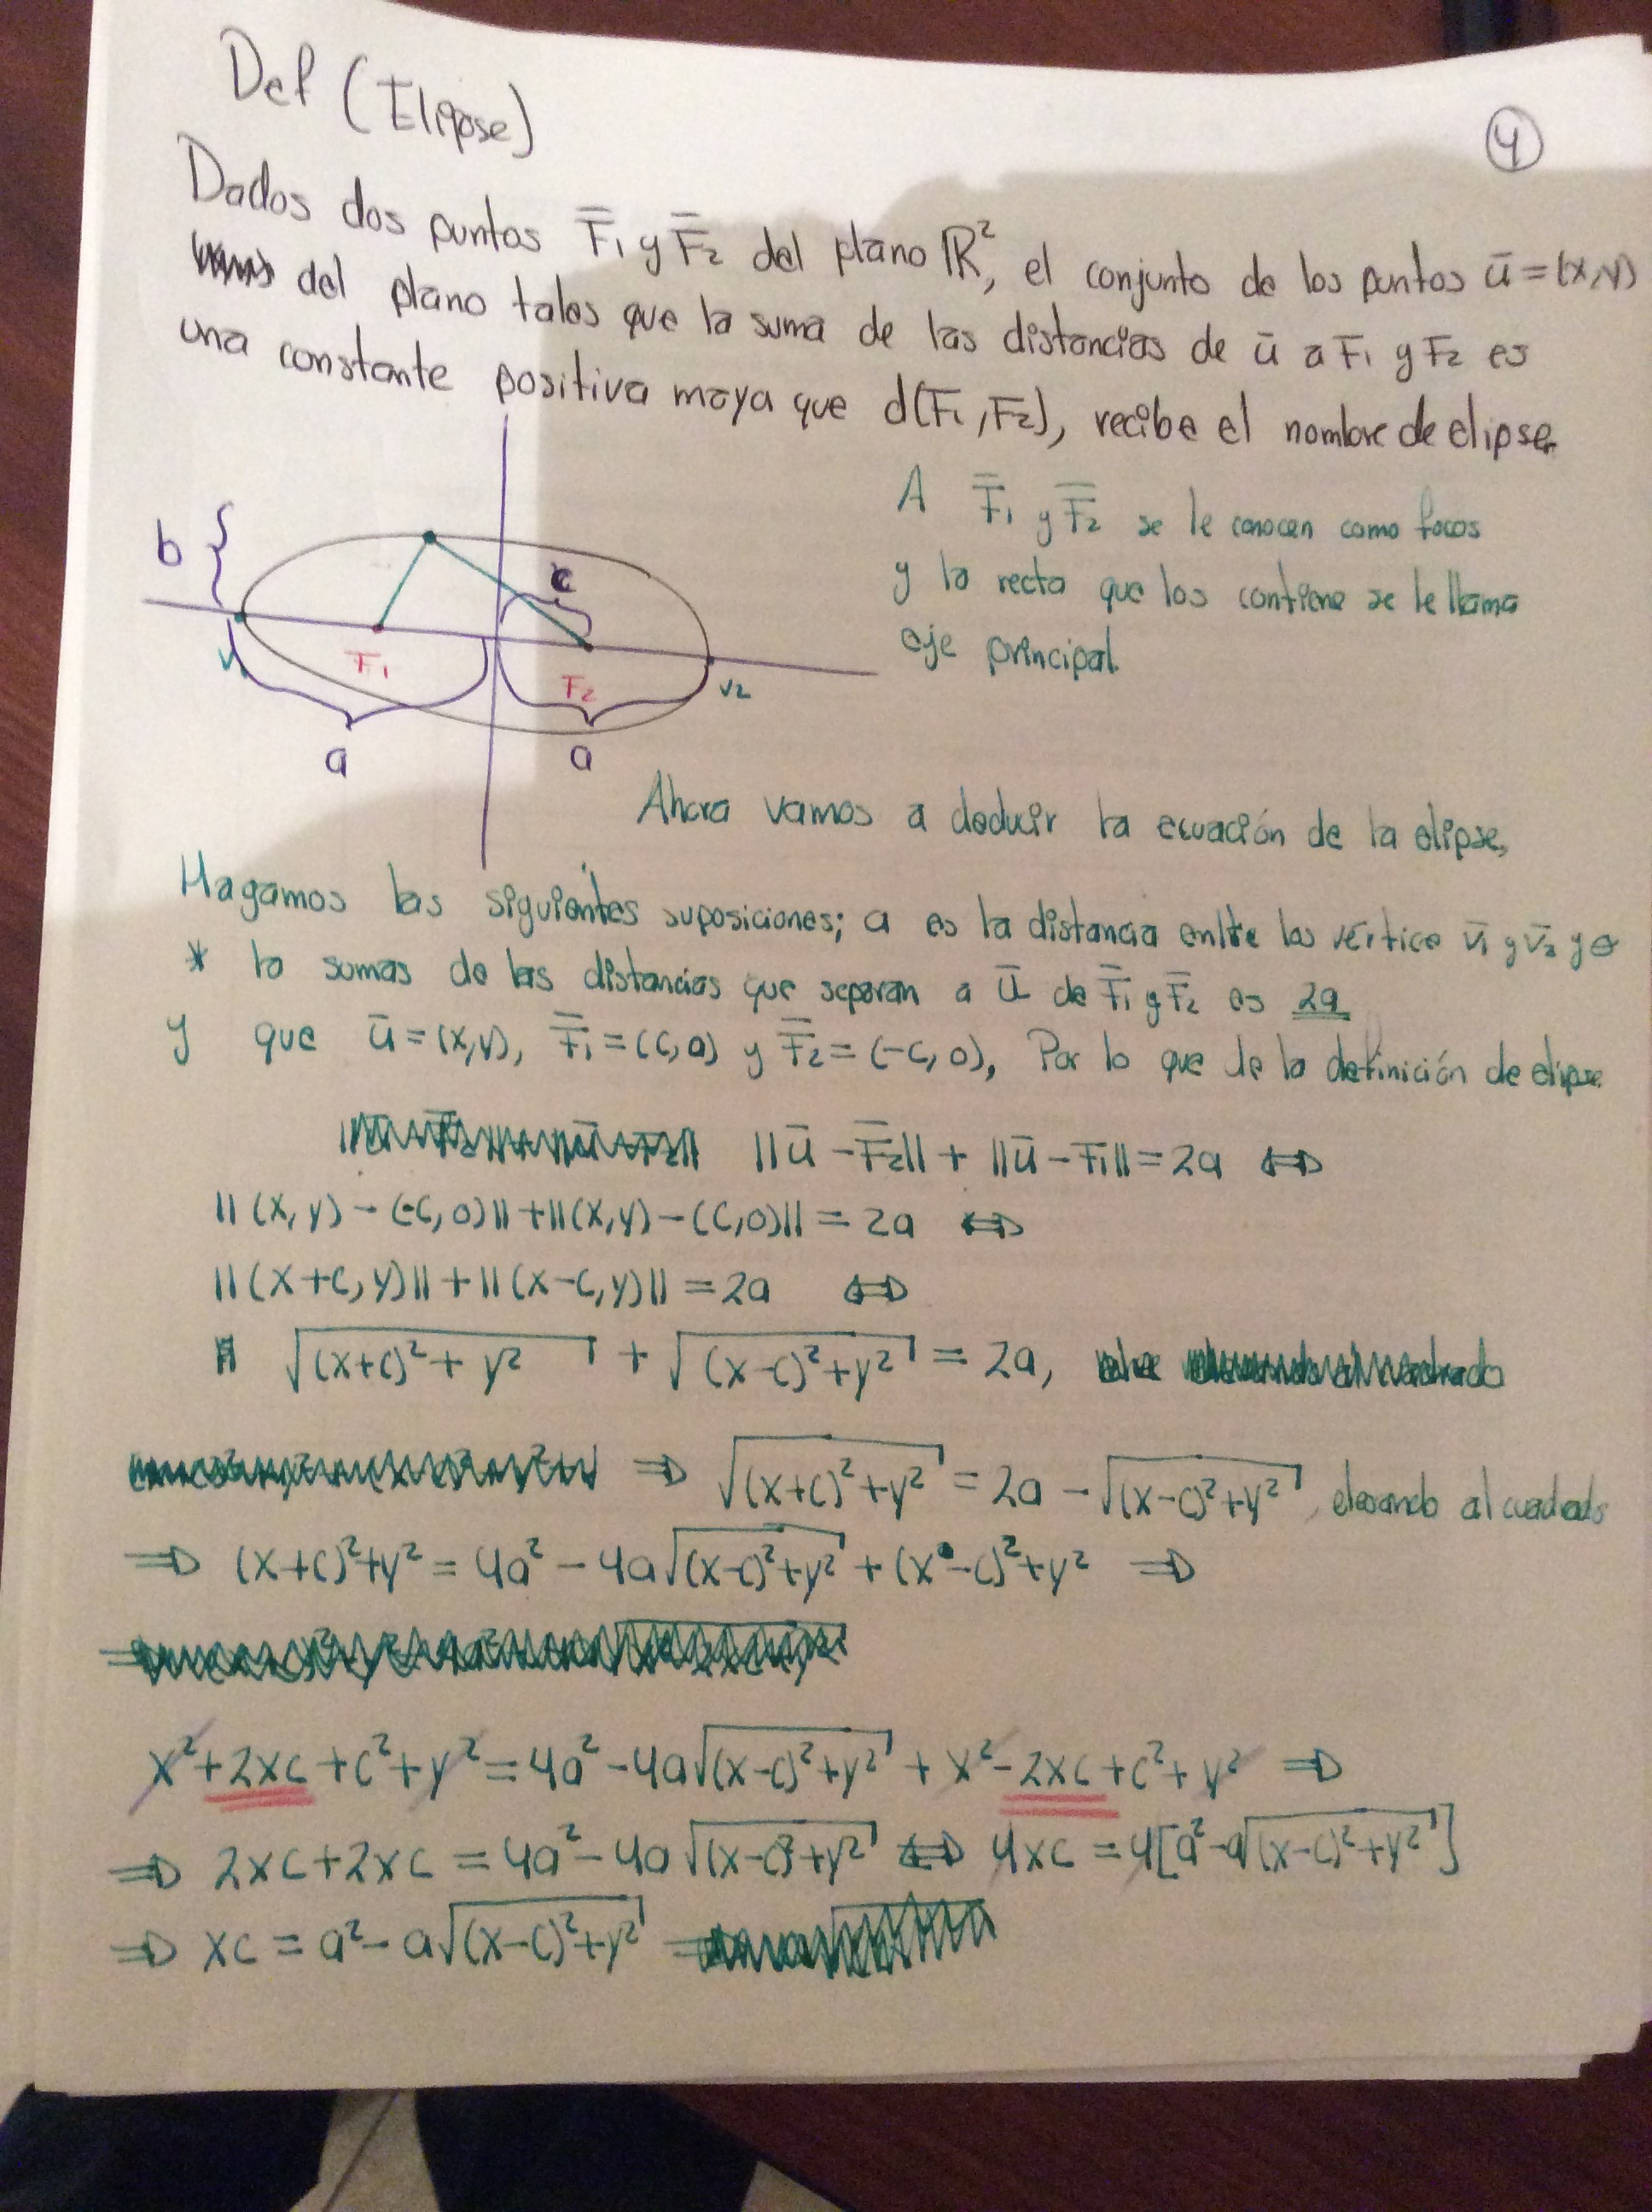 Def (Elipse)
4
Dados dos puntos F̄₁ y F̄₂ del plano ℝ², el conjunto de los puntos ū = (x,y)
del plano tales que la suma de las distancias de ū a F₁ y F₂ es
una constante positiva maya que d(F₁,F₂), recibe el nombre de elipse.
A F̄₁ y F̄₂ se le conocen como focos
y la recta que los contiene se le llama
eje principal.
b
c
V₁
F₁
F₂
V₂
a
a
Ahora vamos a deducir la ecuación de la elipse,
Hagamos las siguientes suposiciones; a es la distancia entre los vertice v̄₁ y v̄₂ y
* la sumas de las distancias que separan a ū de F̄₁ y F̄₂ es 2a
y que ū = (x,y), F̄₁ = (c,0) y F̄₂ = (-c,0), Por lo que de la definición de elipse
||ū - F̄₂|| + ||ū - F₁|| = 2a ⇔
||(x,y) - (-c,0)|| + ||(x,y) - (c,0)|| = 2a ⇔
||(x+c,y)|| + ||(x-c,y)|| = 2a ⇔
√((x+c)² + y²) + √((x-c)² + y²) = 2a,
⇒ √((x+c)² + y²) = 2a - √((x-c)² + y²), elevando al cuadrado
⇒ (x+c)² + y² = 4a² - 4a√((x-c)² + y²) + (x-c)² + y² ⇒
x² + 2xc + c² + y² = 4a² - 4a√((x-c)² + y²) + x² - 2xc + c² + y² ⇒
⇒ 2xc + 2xc = 4a² - 4a√((x-c)² + y²) ⇔ 4xc = 4[a² - a√((x-c)² + y²)]
⇒ xc = a² - a√((x-c)² + y²)